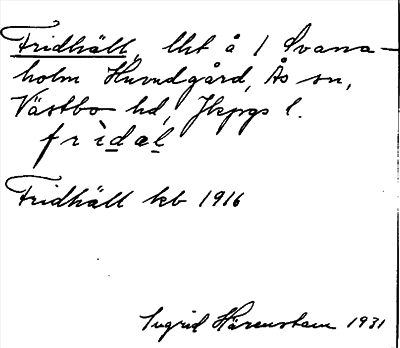 Fridhäll, lht å 1 Svana-
holm Huvudgård, Ås sn,
Västbo hd, Jkpgs l.
frìdạḷ
Fridhäll kb 1916
Ingrid Härenstam 1931